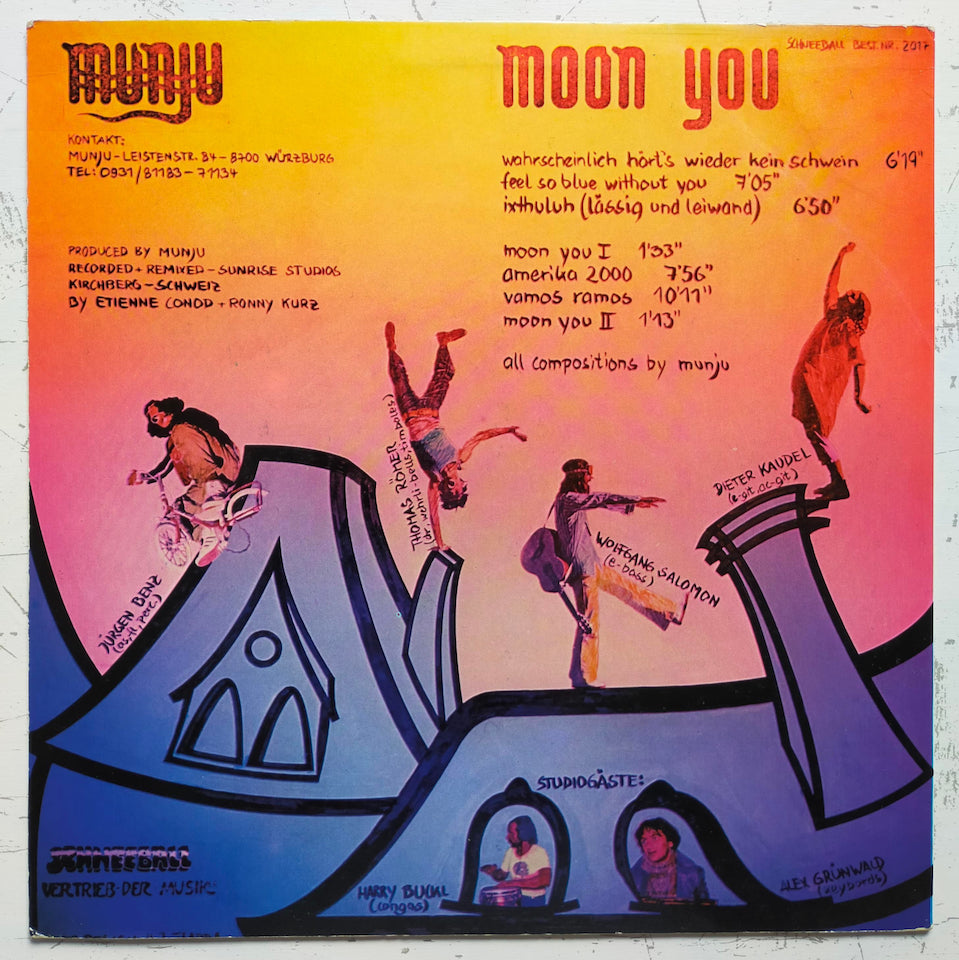 munju
moon you
SCHNEEBALL BEST.NR. 2017
KONTAKT:
MUNJU-LEISTENSTR. 84-8700 WÜRZBURG
TEL: 0931/81183-71134
wahrscheinlich hört's wieder kein schwein 6'19"
feel so blue without you 7'05"
ixthuluh (lässig und leiwand) 6'50"
PRODUCED BY MUNJU
RECORDED + REMIXED - SUNRISE STUDIOS
KIRCHBERG - SCHWEIZ
BY ETIENNE CONOD + RONNY KURZ
moon you I 1'33"
amerika 2000 7'56"
vamos ramos 10'11"
moon you II 1'13"
all compositions by munju
JÜRGEN BENZ
(as, fl, perc.)
THOMAS RÖMER
WOLFGANG SALOMON
(e-bass)
DIETER KAUDEL
(e-git, ac-git)
STUDIOGÄSTE:
HARRY BUCKL
(congas)
ALEX GRÜNWALD
(keyboards)
SCHNEEBALL
VERTRIEB DER MUSIKER